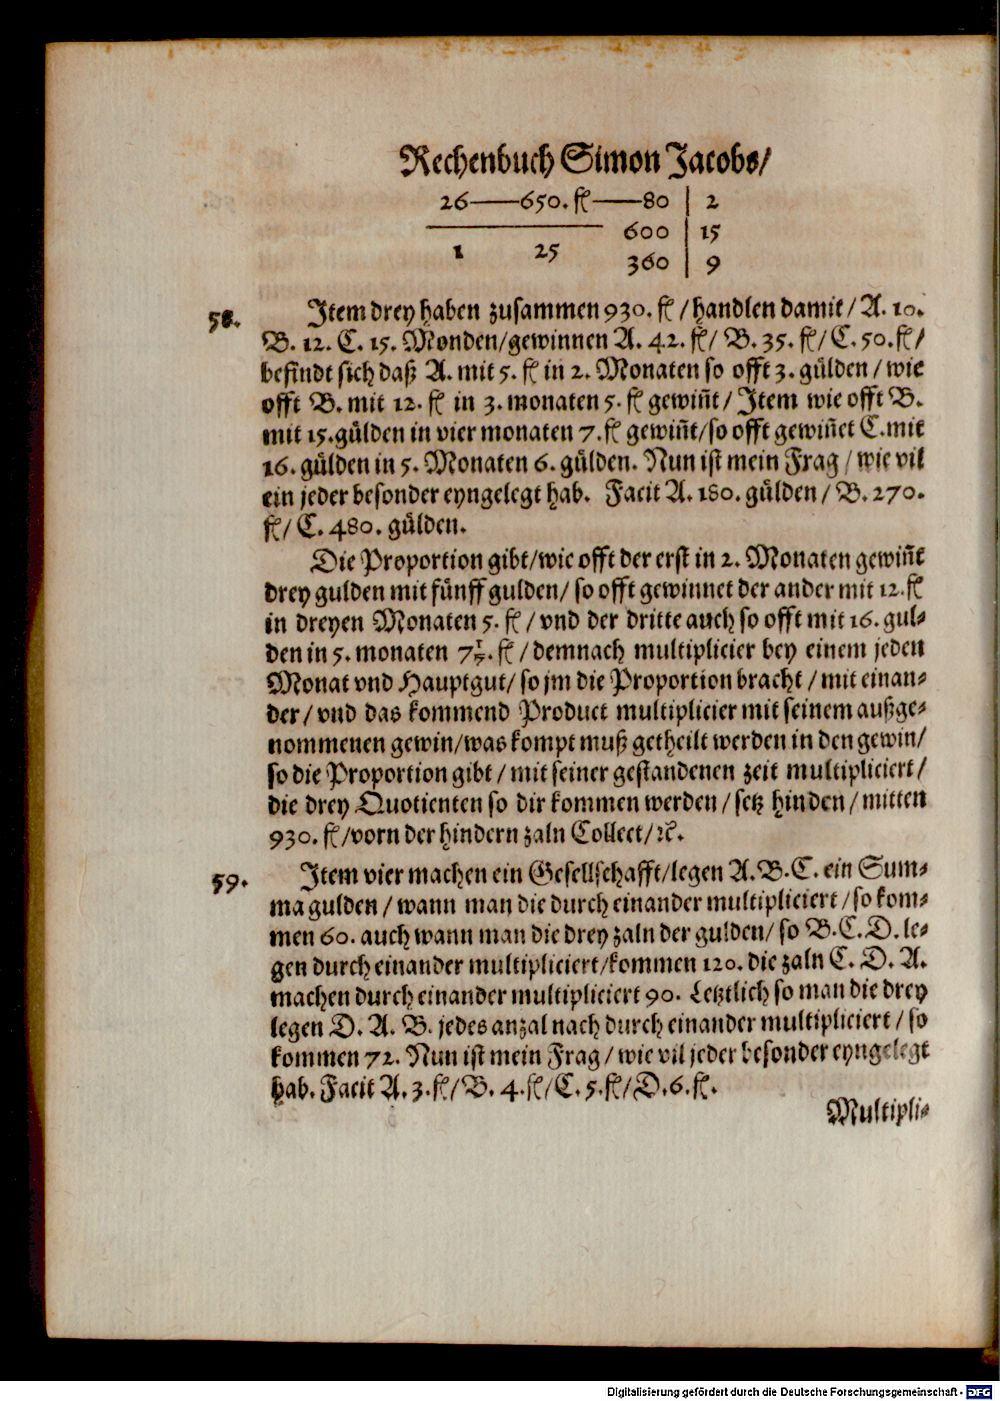 Rechenbuch Simon Jacobs/
26——650. fl——80 | 2
600 | 15
1 25
360 | 9
58. Item drey haben zusammen 930. fl / handlen damit / A. 10.
B. 12. C. 15. Monden/gewinnen A. 42. fl/ B. 35. fl/ C. 50. fl/
befindt sich daß A. mit 5. fl in 2. Monaten so offt 3. gülden / wie
offt B. mit 12. fl in 3. monaten 5. fl gewiñt / Item wie offt B.
mit 15. gülden in vier monaten 7. fl gewiñt/so offt gewiñet C. mit
16. gülden in 5. Monaten 6. gülden. Nun ist mein Frag / wie vil
ein jeder besonder eyngelegt hab. Facit A. 180. gülden / B. 270.
fl/ C. 480. gülden.
Die Proportion gibt/wie offt der erst in 2. Monaten gewiñt
drey gulden mit fünff gulden / so offt gewinnet der ander mit 12. fl
in dreyen Monaten 5. fl / vnd der dritte auch so offt mit 16. gul⸗
den in 5. monaten 7 1/7. fl / demnach multiplicier bey einem jeden
Monat vnd Hauptgut/ so jm die Proportion bracht / mit einan⸗
der / vnd das kommend Product multiplicier mit seinem außge⸗
nommenen gewin/was kompt muß getheilt werden in den gewin/
so die Proportion gibt / mit seiner gestandenen zeit multipliciert/
die drey Quotienten so dir kommen werden / setz hinden / mitten
930. fl /vorn der hindern zaln Collect/ ꝛc.
59. Item vier machen ein Gesellschafft/legen A. B. C. ein Sum⸗
ma gulden / wann man die durch einander multipliciert / so kom⸗
men 60. auch wann man die drey zaln der gulden/ so B. C. D. le⸗
gen durch einander multipliciert/kommen 120. die zaln C. D. A.
machen durch einander multipliciert 90. Letztlich so man die drey
legen D. A. B. jedes anzal nach durch einander multipliciert / so
kommen 72. Nun ist mein Frag / wie vil jeder besonder eyngelegt
hab. Facit A. 3. fl/ B. 4. fl/ C. 5. fl/ D. 6. fl.
Multipli⸗
Digitalisierung gefördert durch die Deutsche Forschungsgemeinschaft - DFG